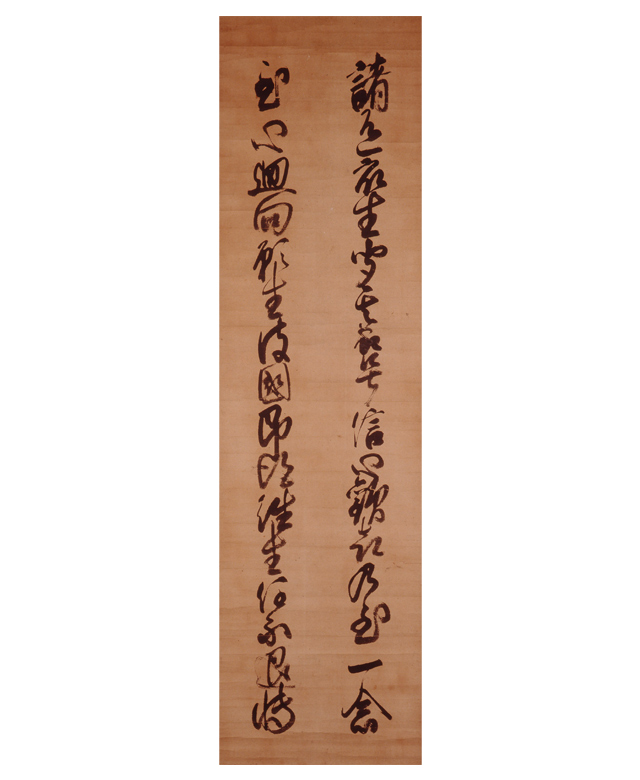 諸有衆生聞其名號信心歡喜乃至一念
至心廻向願生彼國即得往生住不退轉